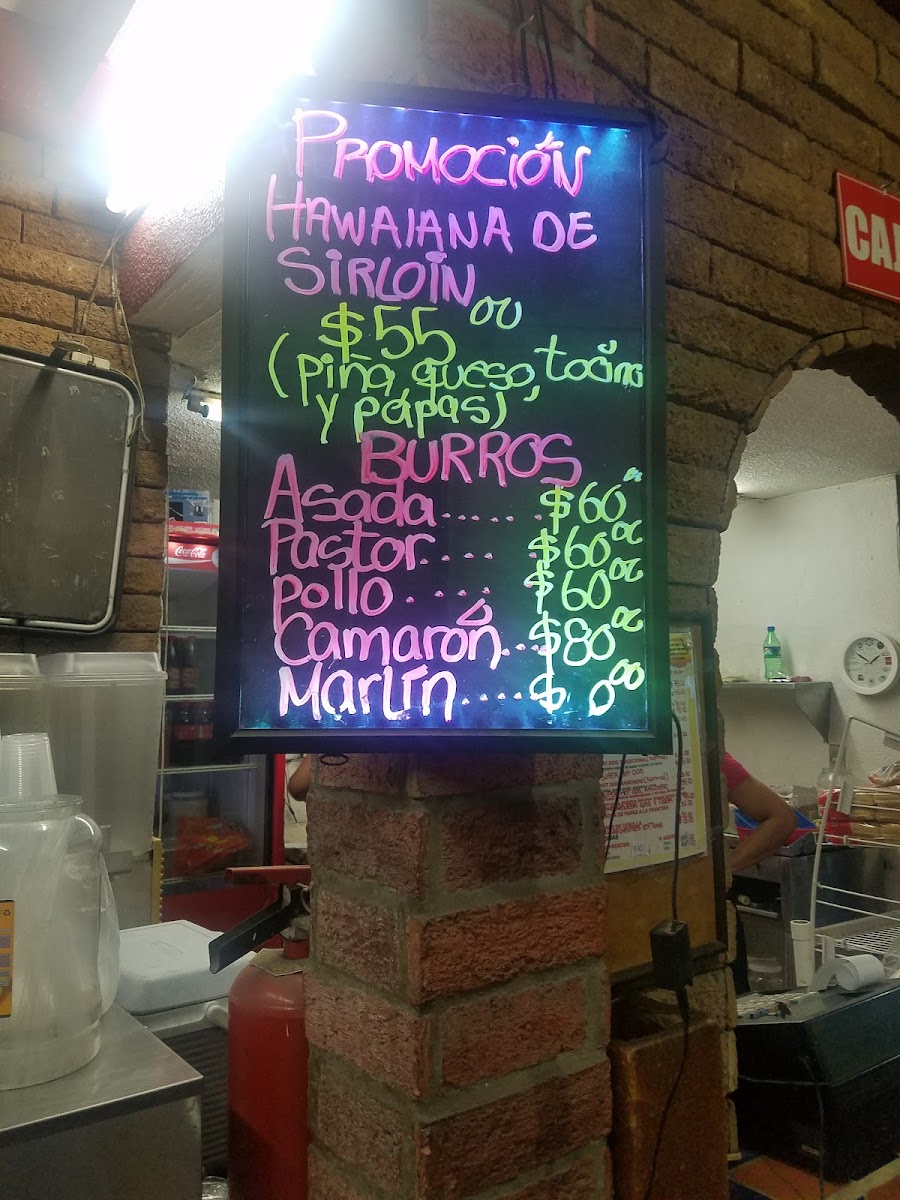 PROMOCIÓN
HAWAIANA DE
SIRLOIN
$55 00
(piña, queso, tocino
y papas)
BURROS
Asada ...... $60 00
Pastor .... $60 00
pollo ..... $60 00
Camarón ... $80 00
Marlín ..... $ 0 00
Coca-Cola